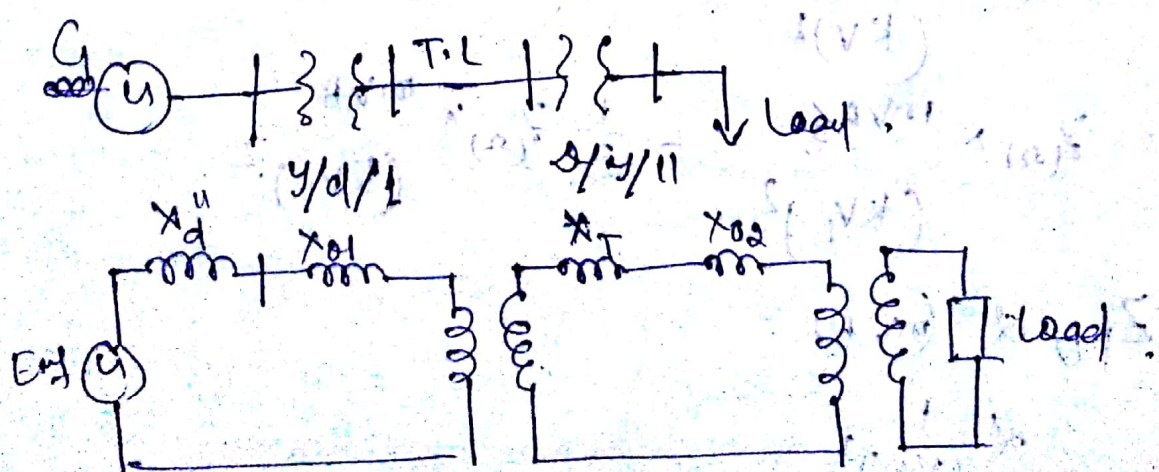 G
T.L
Load.
Y/d/1
D/y/11
X"d
X01
XT
X02
Load